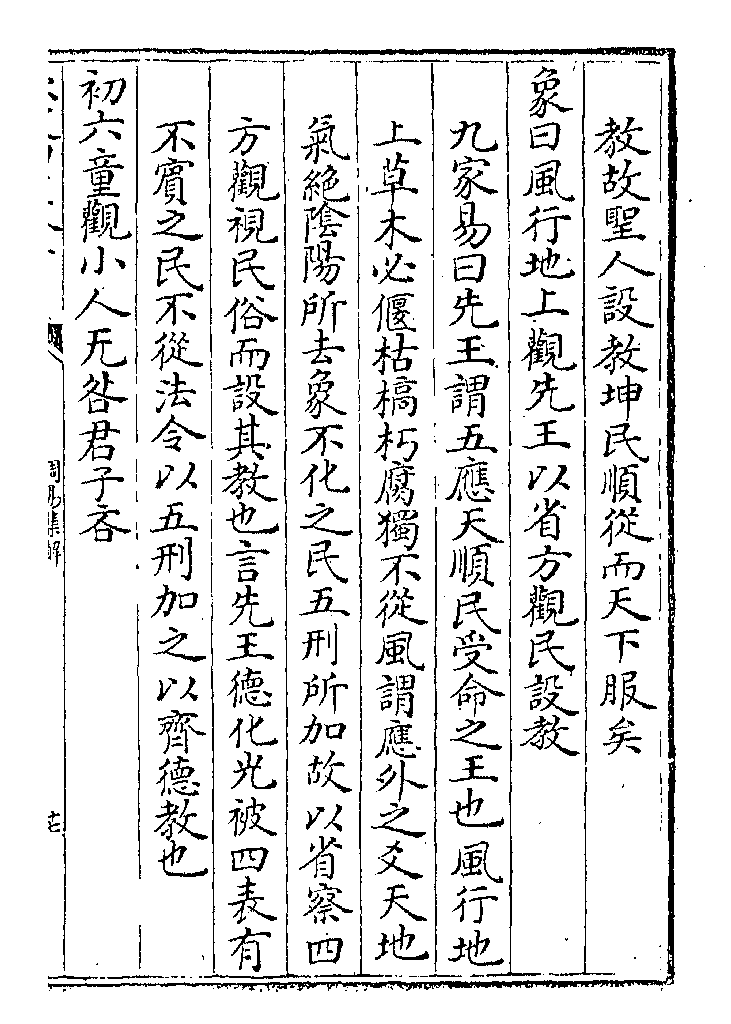 教故聖人設教坤民順從而天下服矣
象曰風行地上觀先王以省方觀民設教
九家易曰先王謂五應天順民受命之王也風行地
上草木必偃枯槁朽腐獨不從風謂應外之爻天地
氣絶陰陽所去象不化之民五刑所加故以省察四
方觀視民俗而設其教也言先王德化光被四表有
不賓之民不從法令以五刑加之以齊德教也
初六童觀小人无咎君子吝
周易集解